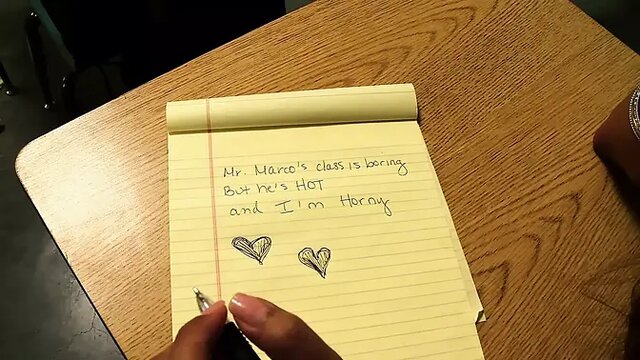 Mr. Marco's class is boring
But he's HOT
and I'm Horny